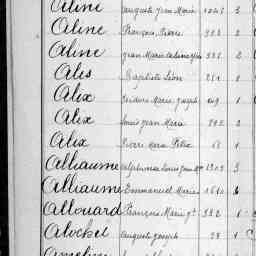 Aline Auguste Jean Marie 1243 2
Aline François Pierre 2
Aline Jean Marie 2
Alis Baptiste Léon 251 1
Alix Isidore Marie Joseph 1
Alix Louis Jean Marie 2
Alix Pierre Marie Félix 1
Alliaume Alphonse Louis Jean 1909 3
Alliaume Emmanuel Marie 1610 6
Allouard François Marie 382 1
Alochet Auguste Joseph 28 1